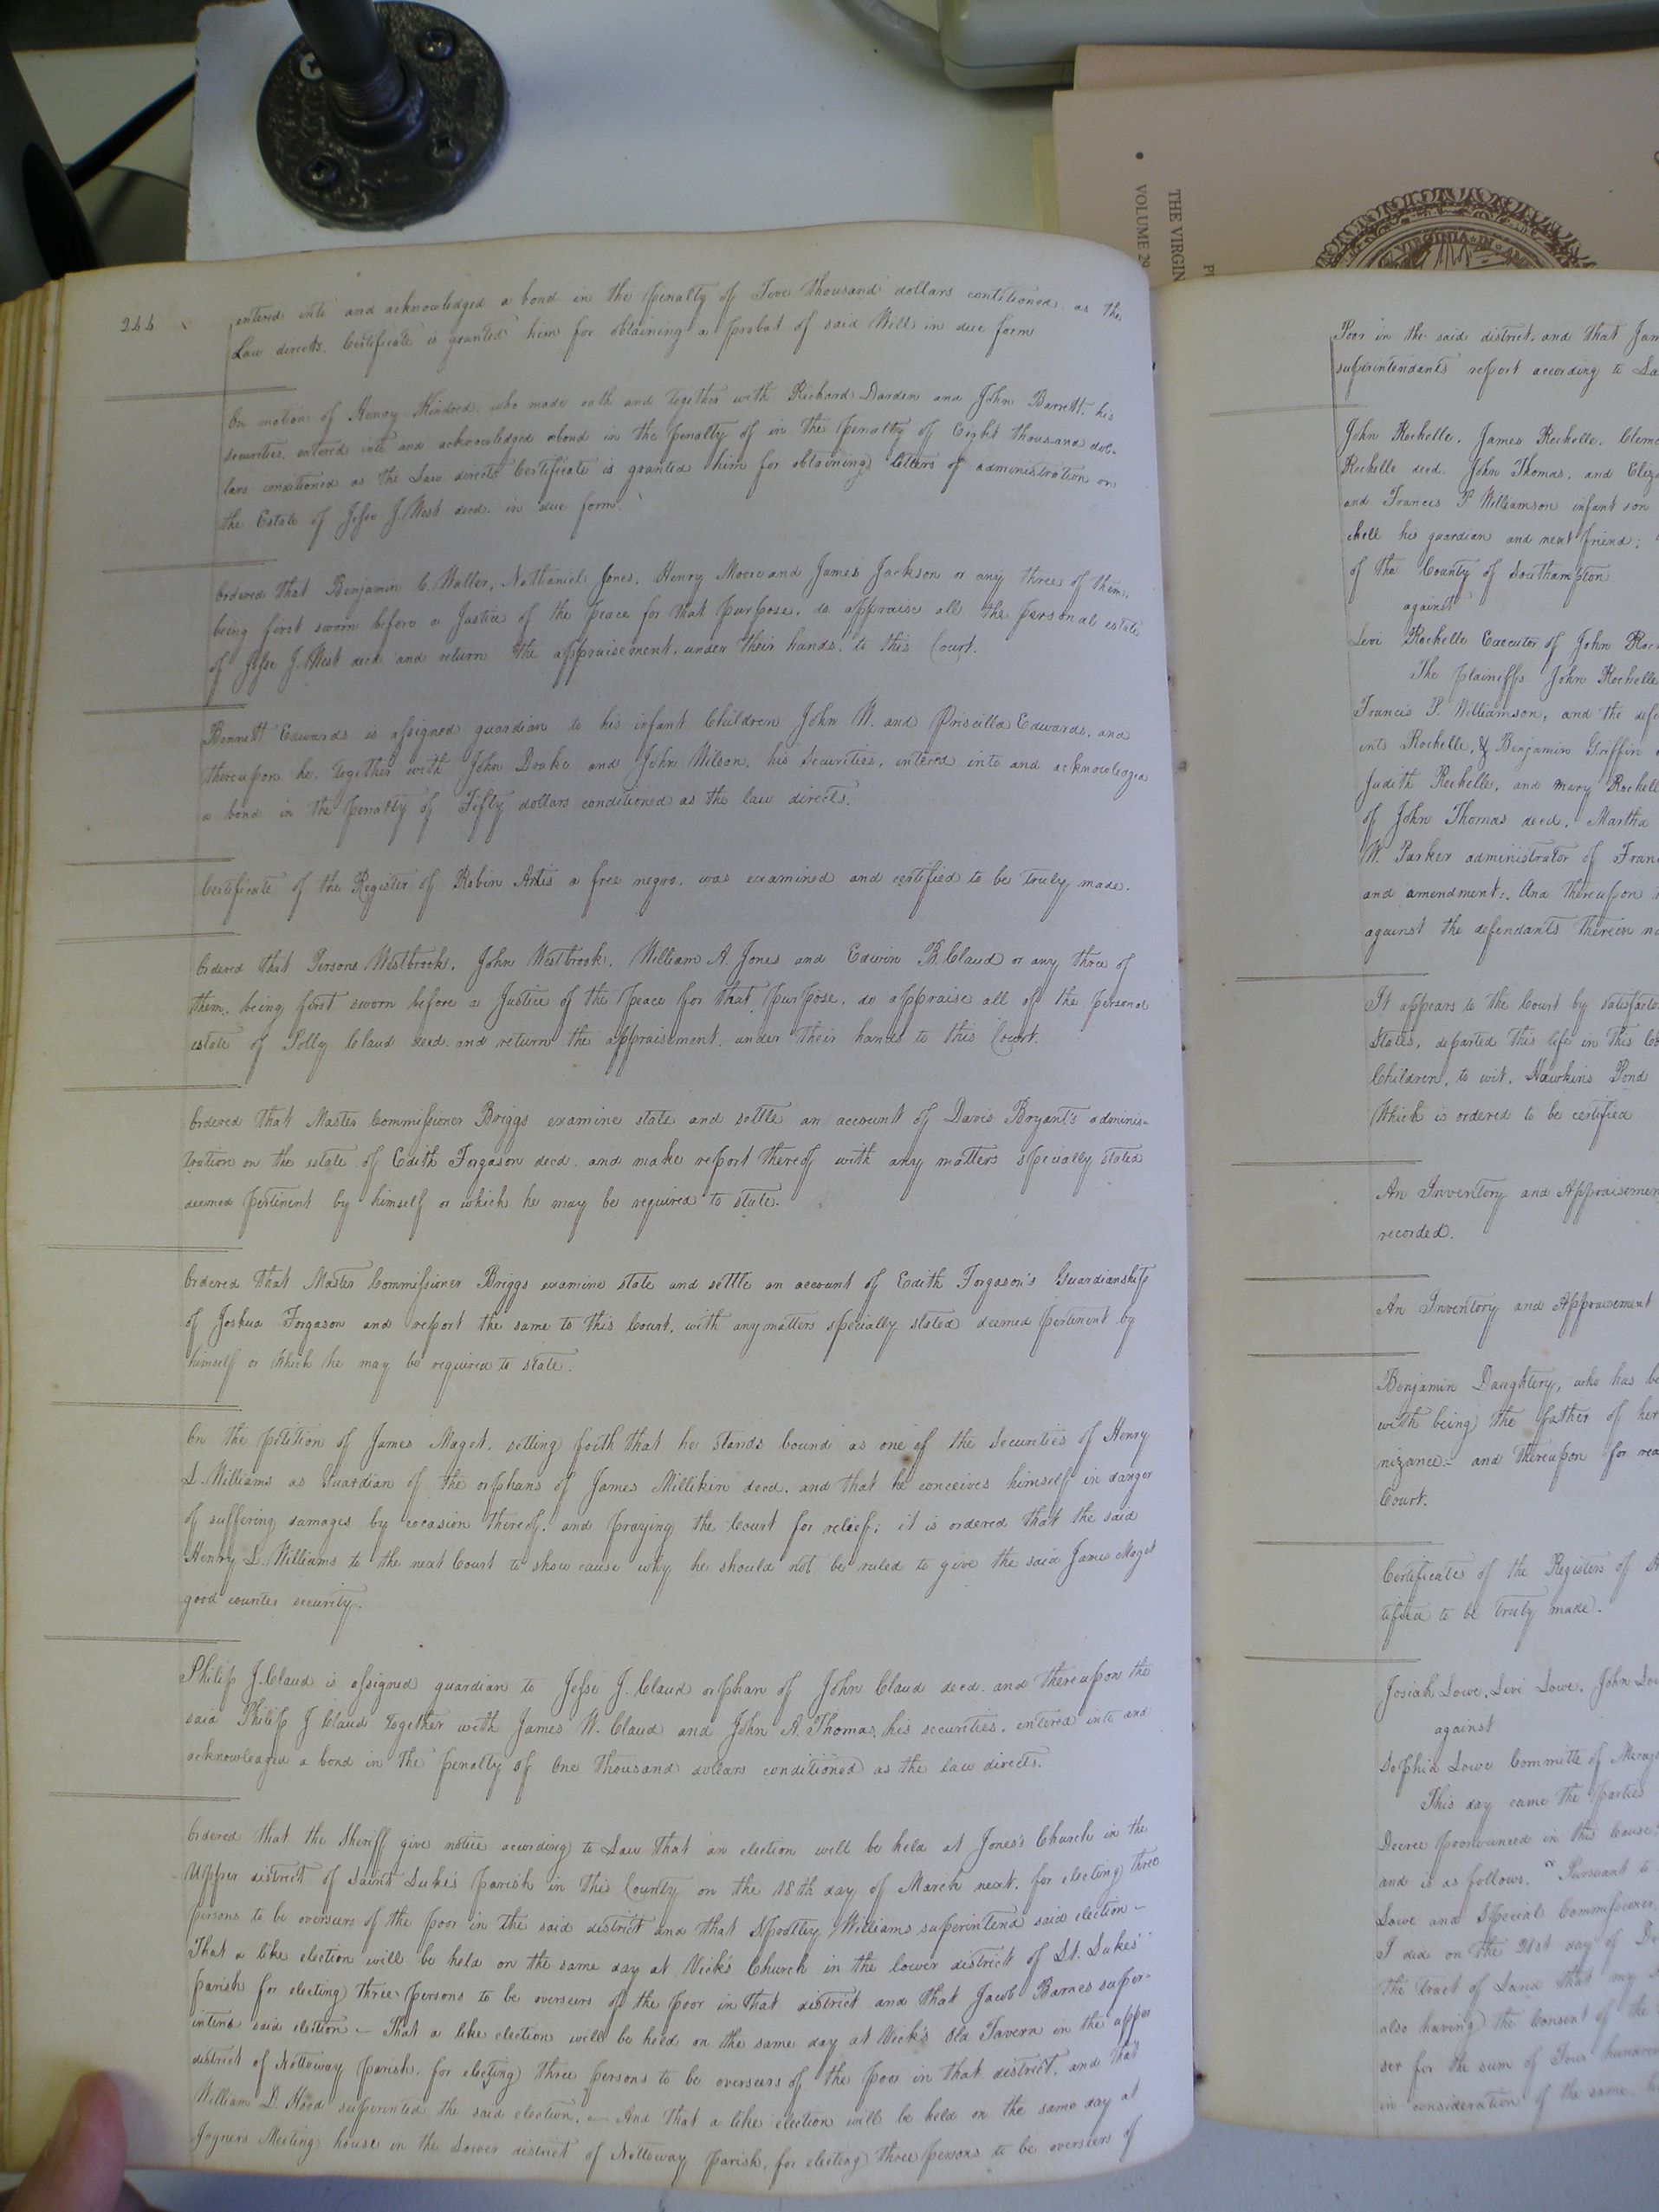 THE VIRGIN
VOLUME 29
VIRGINIA IN
244
entered into and acknowledged a bond in the penalty of Five thousand dollars conditioned as the
Law directs. Certificate is granted him for obtaining a probat of said Will in due form
On motion of Henry Kindred who made oath and together with Richard Darden and John Barrett his
securities, entered into and acknowledged a bond in the penalty of in the penalty of Eight thousand dol-
lars conditioned as the Law directs Certificate is granted him for obtaining letters of administration on
the Estate of Jesse J. West decd. in due form.
Ordered that Benjamin C. Waller, Nathaniel Jones, Henry Moore and James Jackson or any three of them,
being first sworn before a Justice of the peace for that purpose, do appraise all the personal estate
of Jesse J. West decd and return the appraisement, under their hands, to this Court.
Bennett Edwards is assigned guardian to his infant Children John W. and Priscilla Edwards, and
thereupon he, together with John Drake and John Wilson, his securities, entered into and acknowledged
a bond in the penalty of Fifty dollars conditioned as the law directs.
Certificate of the Register of Robin Artis a free negro, was examined and certified to be truly made.
Ordered that Persons Westbrook, John Westbrook, William A. Jones and Edwin B. Claud or any three of
them, being first sworn before a Justice of the peace for that purpose, do appraise all of the personal
estate of Polly Claud decd. and return the appraisement, under their hands to this Court.
Ordered that Master Commissioner Briggs examine state and settle an account of Davis Bryant's adminis-
tration on the estate of Edith Forgason decd. and make report thereof with any matters specially stated
deemed pertinent by himself or which he may be required to state.
Ordered that Master Commissioner Briggs examine state and settle an account of Edith Forgason's Guardianship
of Joshua Forgason and report the same to this Court, with any matters specially stated deemed pertinent by
himself or which he may be required to state.
On the petition of James Maget, setting forth that he stands bound as one of the securities of Henry
L. Williams as Guardian of the orphans of James Millikin decd. and that he conceives himself in danger
of suffering damages by occasion thereof, and praying the Court for relief; it is ordered that the said
Henry L. Williams to the next Court to show cause why he should not be ruled to give the said James Maget
good counter security.
Philip J. Claud is assigned guardian to Jesse J. Claud orphan of John Claud decd. and thereupon the
said Philip J Claud together with James W. Claud and John A. Thomas, his securities, entered into and
acknowledged a bond in the penalty of One thousand dollars conditioned as the law directs.
Ordered that the Sheriff give notice according to Law that an election will be held at Jones's Church in the
Upper district of Saint Luke's parish in this County on the 18th day of March next, for electing three
persons to be overseers of the poor in the said district and that Spratley Williams superintend said election –
That a like election will be held on the same day at Vick's Church in the lower district of St. Lukes'
parish for electing three persons to be overseers of the poor in that district and that Jacob Barnes super-
intend said election – That a like election will be held on the same day at Vick's Old Tavern in the upper
district of Nottoway parish, for electing three persons to be overseers of the poor in that district, and that
William D. Hood superinted the said election. – And that a like election will be held on the same day at
Joyners Meeting house in the Lower district of Nottoway parish, for electing three persons to be overseers of
Poor in the said district, and that Jam
superintendants report according to La
John Rochelle, James Rochelle, Cleme
Rochelle decd. John Thomas, and Eliza
and Francis P Williamson infant son
chell his guardian and next friend;
of the County of Southampton
against
Levi Rochelle Executor of John Roc
The plaintiffs John Rochelle
Francis P. Williamson, and the defe
ints Rochelle, & Benjamin Griffin
Judith Rochelle, and Mary Rochell
of John Thomas decd, Martha
W. Parker administrator of Fran
and amendment: And thereupon
against the defendants therein na
It appears to the Court by satisfacto
States, departed this life in this Co
Children, to wit, Hawkins Pond
Which is ordered to be certified
An Inventory and Appraisemen
recorded.
An Inventory and Appraisement
Benjamin Daughtery, who has be
with being the father of her
nizance – and thereupon for rea
Court.
Certificates of the Registers of
tified to be truly made.
Josiah Lowe, Levi Lowe, John Lo
against
Sophia Lowe Committe of Micaj
This day came the parties
Decree pronounced in this Cause
and is as follows, "Pursuant to
Lowe and Special Commissioner,
I did on the 21st day of De
the tract of Land that my
also having the consent of the
ser for the sum of Four hundred
in consideration of the same, he